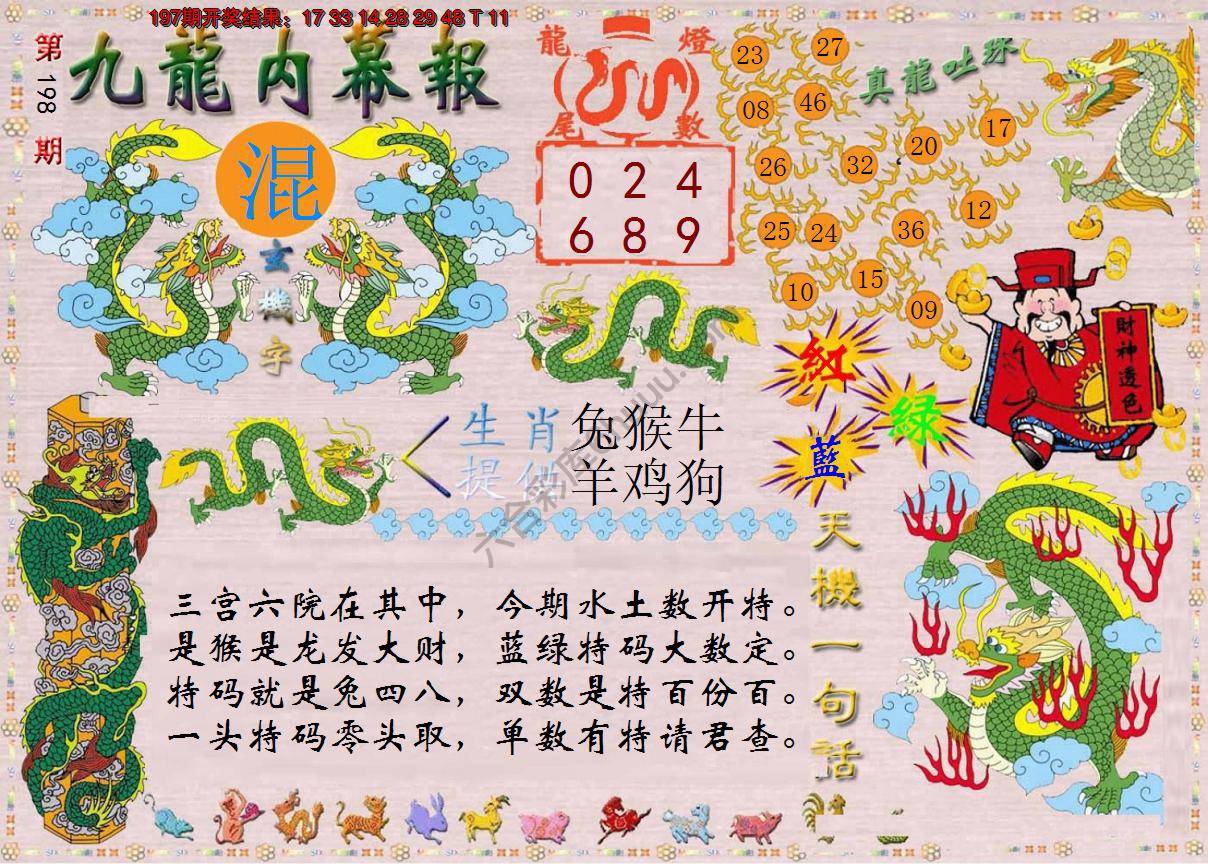 197期开奖结果：17 33 14 28 29 48 T 11
第198期
九龍内幕報
混
玄機字
龍燈
尾數
0 2 4
6 8 9
真龍吐珠
23
27
08
46
26
32
20
17
25
24
36
12
10
15
09
財神透色
紅
绿
藍
生肖
提供
兔猴牛
羊鸡狗
六合彩库
天機一句話
三宫六院在其中，今期水土数开特。
是猴是龙发大财，蓝绿特码大数定。
特码就是兔四八，双数是特百份百。
一头特码零头取，单数有特请君查。